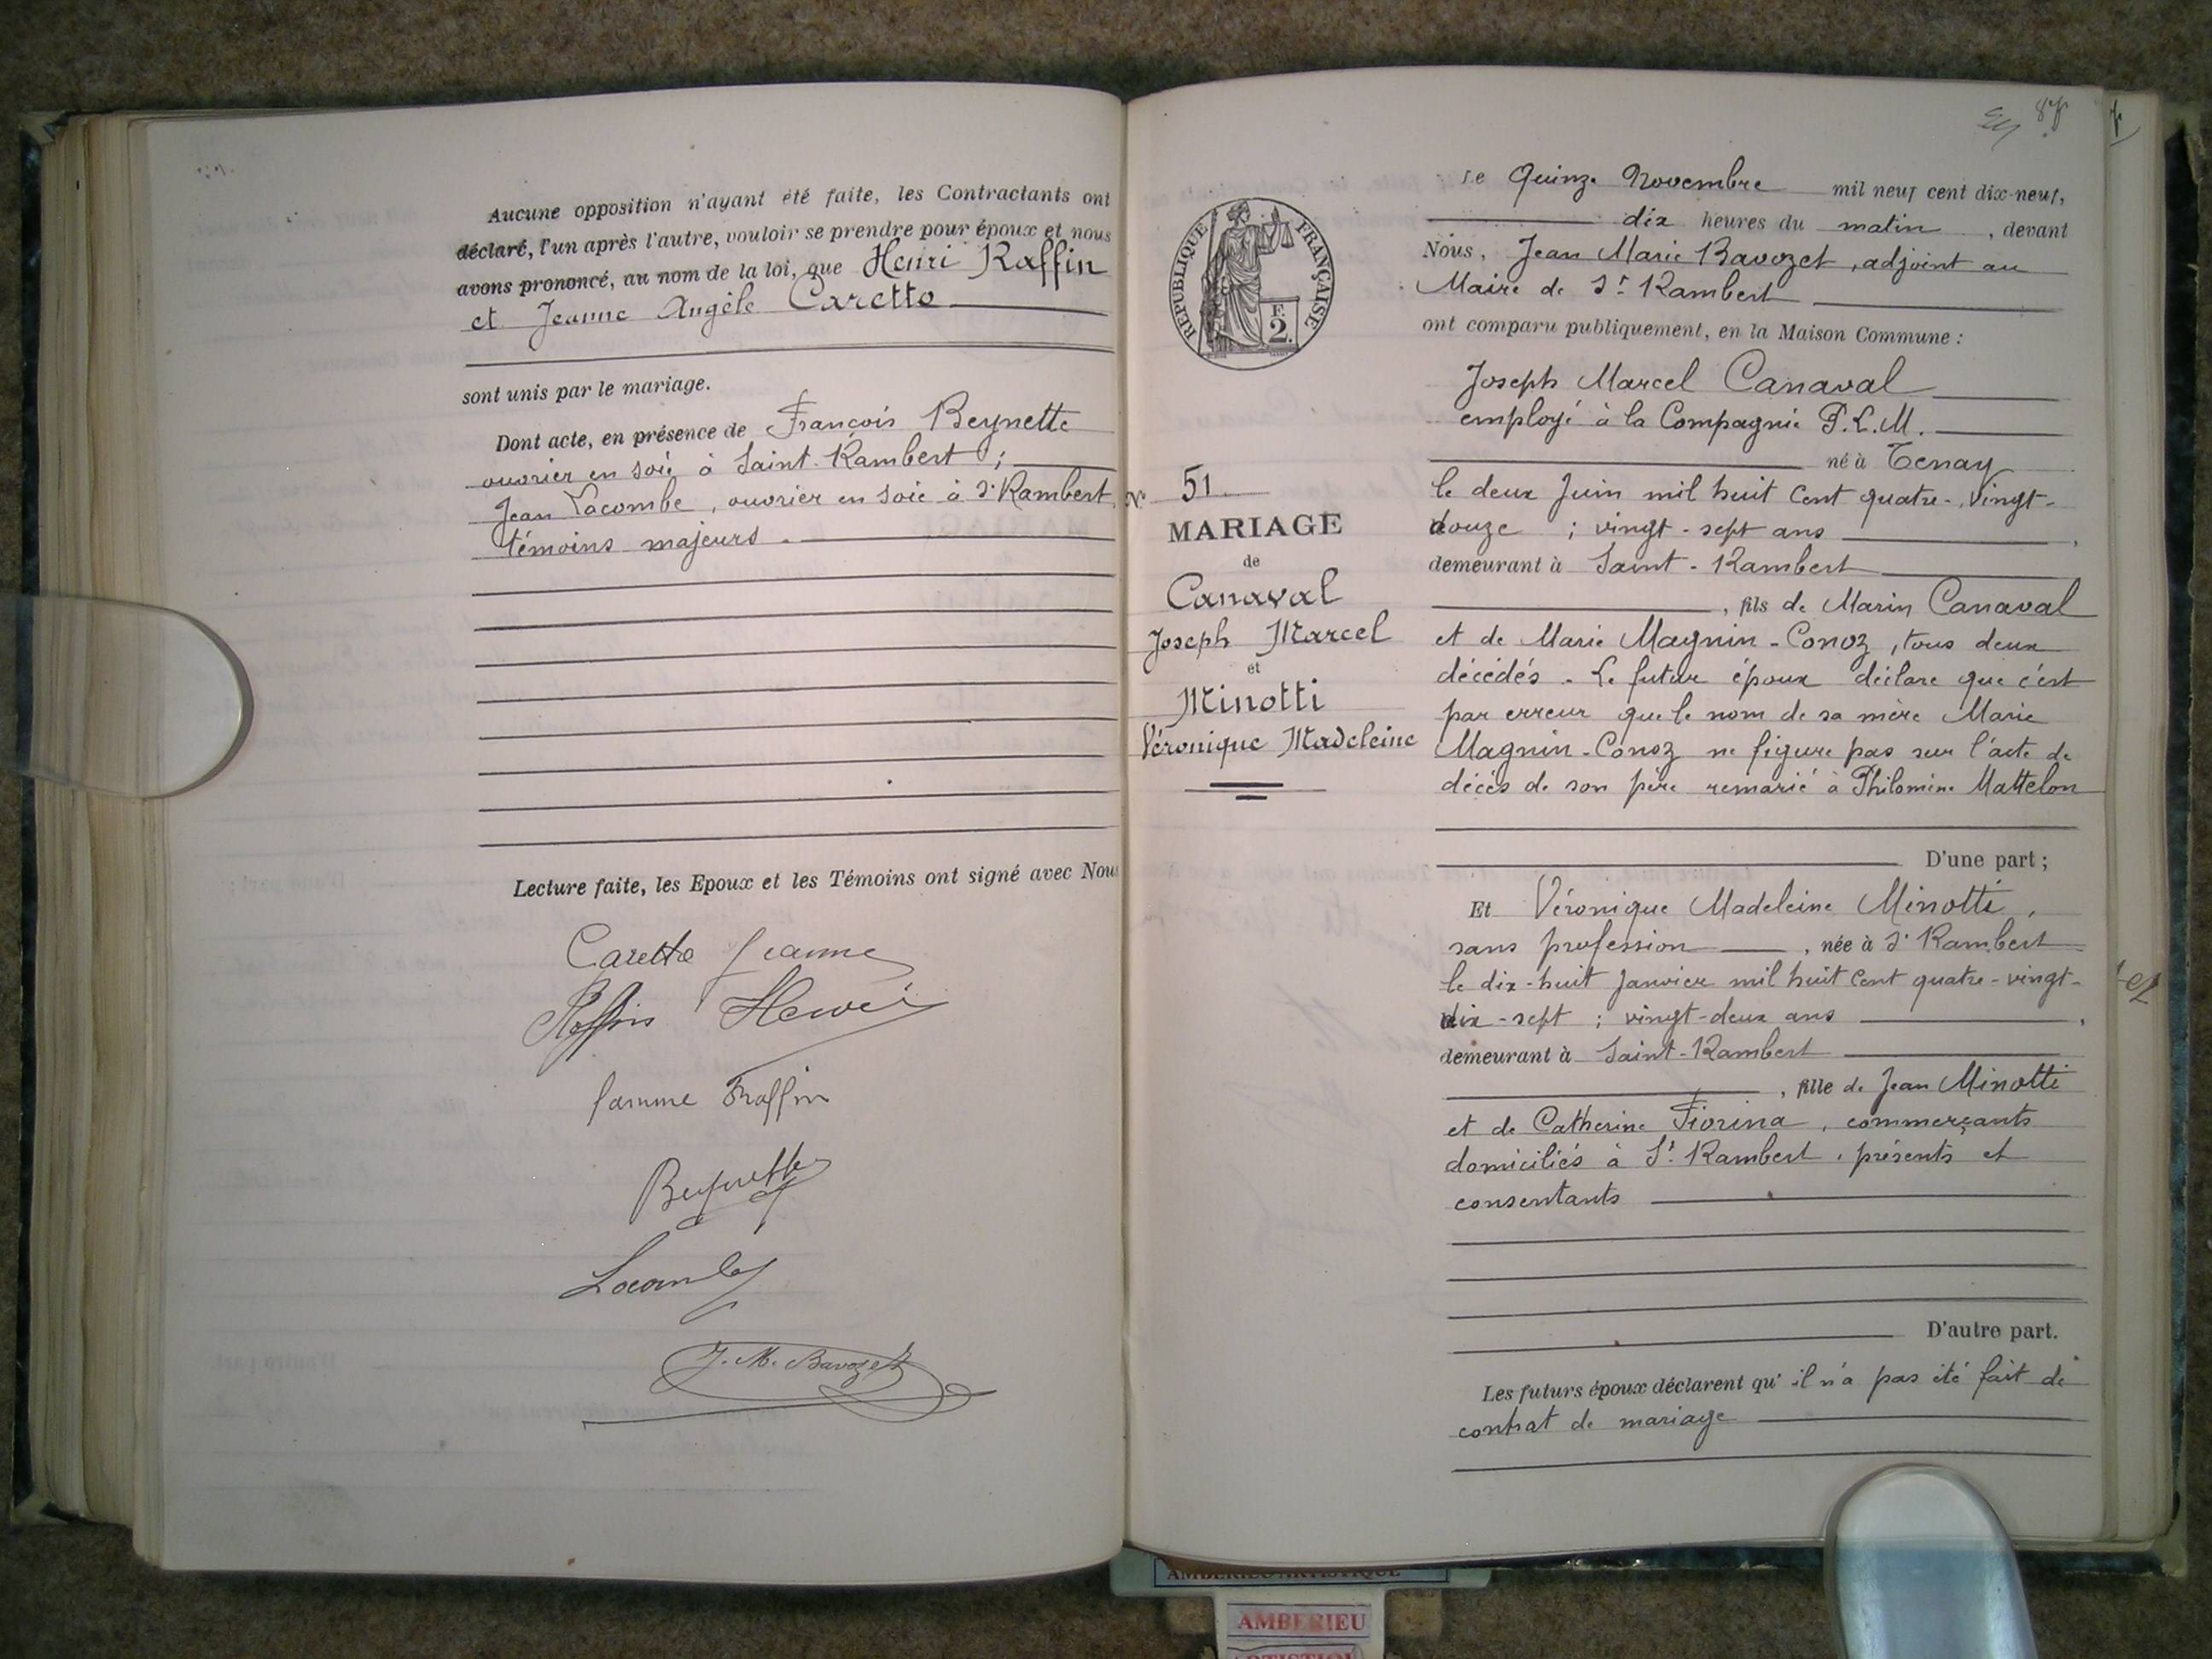 Aucune opposition n'ayant été faite, les Contractants ont
déclaré, l'un après l'autre, vouloir se prendre pour époux et nous
avons prononcé, au nom de la loi, que Henri Raffin
et Jeanne Angèle Caretto
sont unis par le mariage.
Dont acte, en présence de François Beynette
ouvrier en soie à Saint-Rambert ;
Jean Lacombe, ouvrier en soie à St Rambert
témoins majeurs.
Lecture faite, les Epoux et les Témoins ont signé avec Nous
Caretto Jeanne
Raffin Henri
femme Raffin
Beynette
Lacombe
J. M. Bavozet
87
Le Quinze Novembre mil neuf cent dix-neuf,
dix heures du matin, devant
Nous, Jean Marie Bavozet, adjoint au
Maire de St Rambert
ont comparu publiquement, en la Maison Commune :
Joseph Marcel Canaval
employé à la Compagnie P.L.M.
né à Tenay
le deux Juin mil huit cent quatre-vingt-
douze ; vingt-sept ans,
demeurant à Saint-Rambert
, fils de Marin Canaval
et de Marie Magnin-Conoz, tous deux
décédés. Le futur époux déclare que c'est
par erreur que le nom de sa mère Marie
Magnin-Conoz ne figure pas sur l'acte de
décès de son père remarié à Philomine Mattelon
D'une part ;
Et Véronique Madeleine Minotti,
sans profession, née à St Rambert
le dix-huit Janvier mil huit cent quatre-vingt-
dix-sept ; vingt-deux ans,
demeurant à Saint-Rambert
, fille de Jean Minotti
et de Catherine Fiorina, commerçants
domiciliés à St Rambert, présents et
consentants
D'autre part.
Les futurs époux déclarent qu'il n'a pas été fait de
contrat de mariage
RÉPUBLIQUE FRANÇAISE
F.
2.
N° 51
MARIAGE
de
Canaval
Joseph Marcel
et
Minotti
Véronique Madeleine
AMBERIEU ARTISTIQUE
AMBERIEU